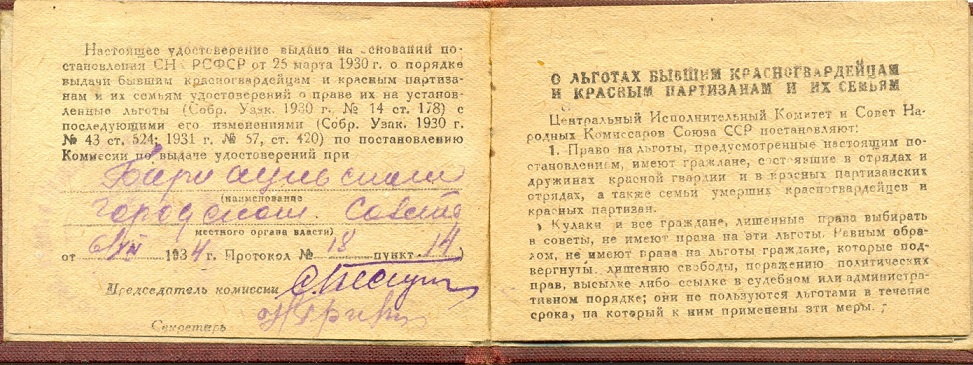 Настоящее удостоверение выдано на основании по-
становления СНК РСФСР от 25 марта 1930 г. о порядке
выдачи бывшим красногвардейцам и красным партиза-
нам и их семьям удостоверений о праве их на уста-
новленные льготы (Собр. Узак. 1930 г. № 14 ст. 178) с
последующими его изменениями (Собр. Узак. 1930 г.
№ 43 ст. 524; 1931 г. № 57, ст. 420) по постановлению
Комиссии по выдаче удостоверений при
Барнаульском
(наименование
городском. Совете
местного органа власти)
от 1934 г. Протокол № 18 пункт 14)
Председатель комиссии
Секретарь
О ЛЬГОТАХ БЫВШИМ КРАСНОГВАРДЕЙЦАМ
И КРАСНЫМ ПАРТИЗАНАМ И ИХ СЕМЬЯМ
Центральный Исполнительный Комитет и Совет На-
родных Комиссаров Союза ССР постановляют:
1. Право на льготы, предусмотренные настоящим по-
становлением, имеют граждане, состоявшие в отрядах и
дружинах красной гвардии и в красных партизанских
отрядах, а также семьи умерших красногвардейцев и
красных партизан.
Кулаки и все граждане, лишенные права выбирать
в советы, не имеют права на эти льготы. Равным обра-
зом, не имеют права на льготы граждане, которые под-
вергнуты лишению свободы, поражению политических
прав, высылке либо ссылке в судебном или администра-
тивном порядке; они не пользуются льготами в течение
срока, на который к ним применены эти меры.